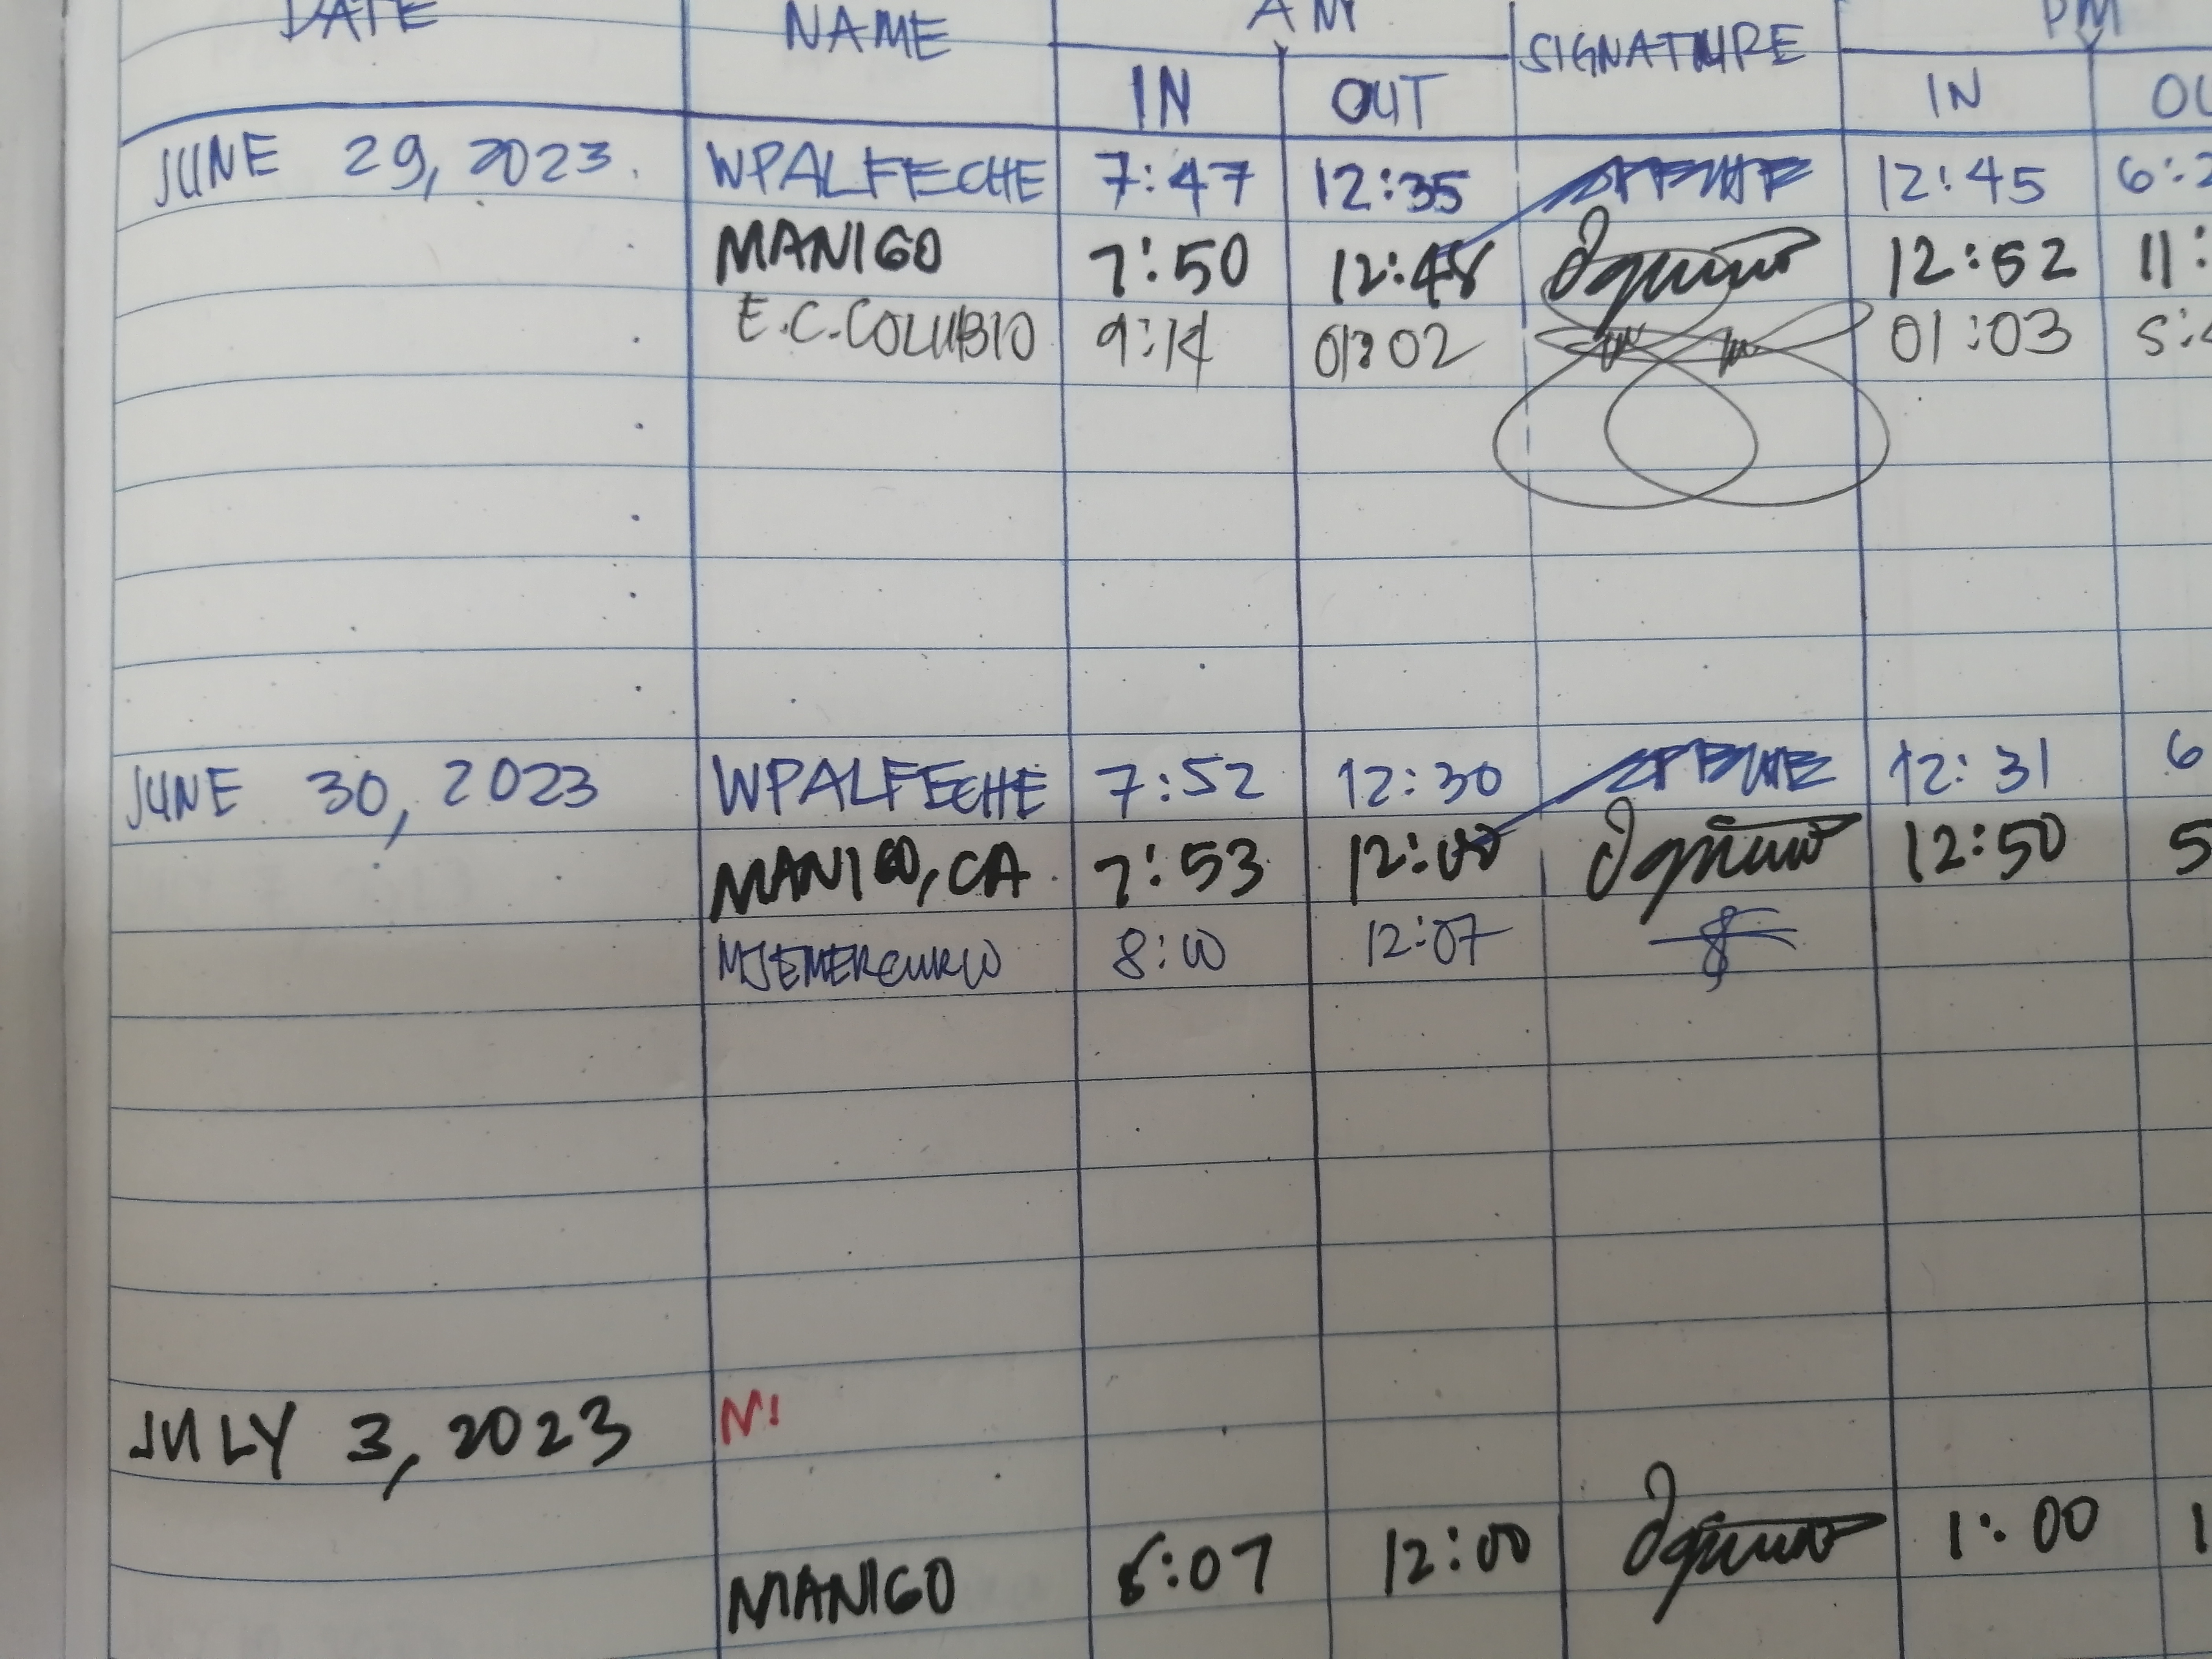 DATE NAME AM SIGNATURE PM
IN OUT IN OU
JUNE 29, 2023. WPALFECHE 7:47 12:35 12:45 6:2
MANIGO 7:50 12:48 12:52 11:
E.C. COLUBIO 9:14 01:02 01:03 5:
JUNE 30, 2023 WPALFECHE 7:52 12:30 12:31 6
MANIGO, CA 7:53 12:00 12:50 5
MJEMERCURIO 8:10 12:07
JULY 3, 2023
MANIGO 12:00 1:00 1